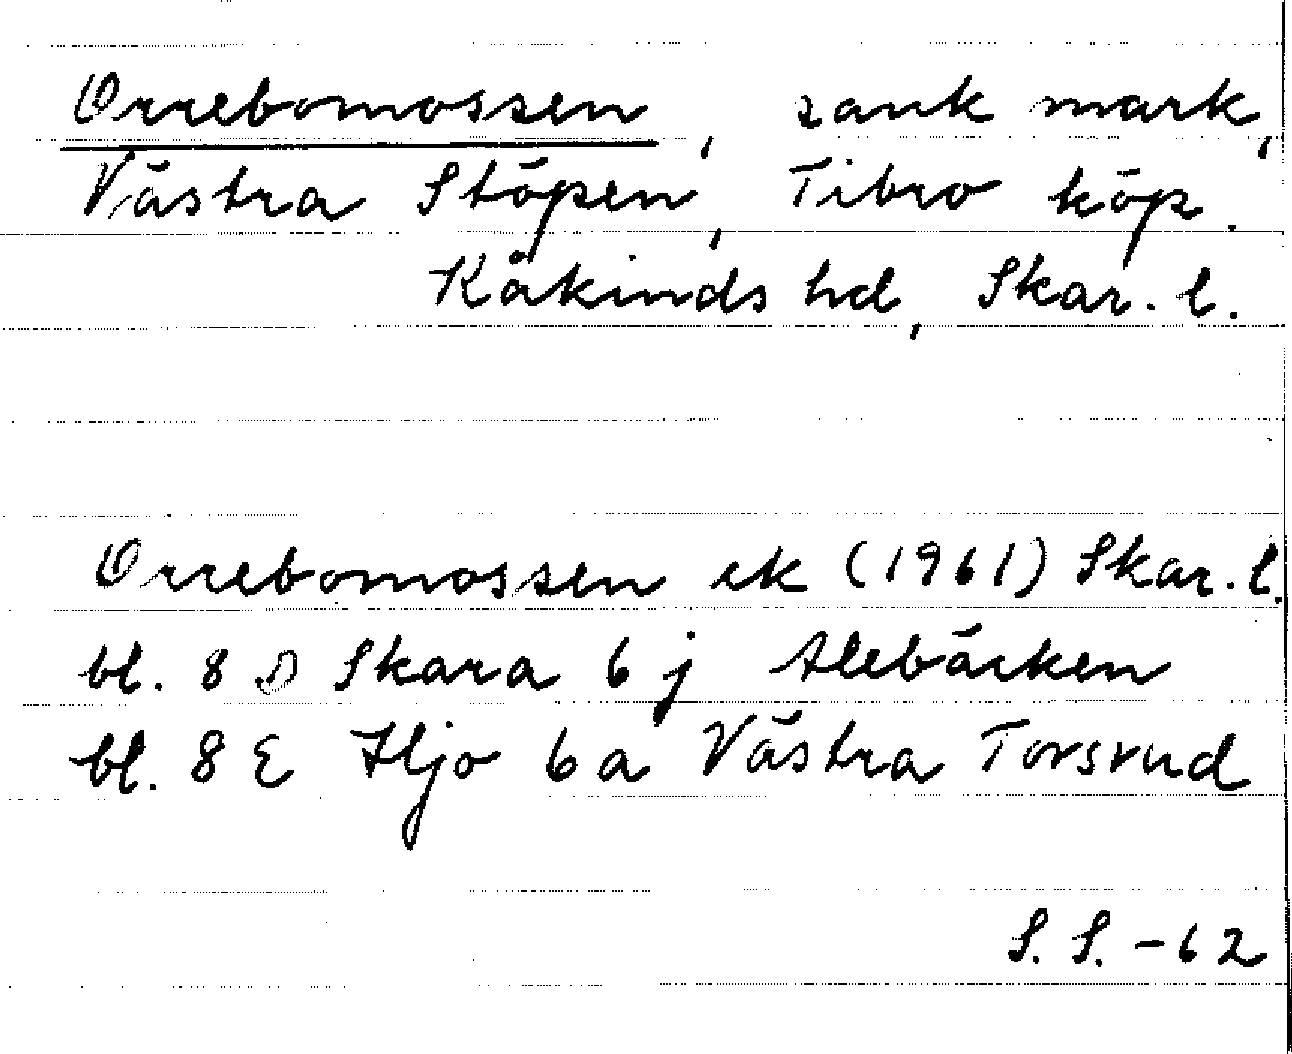 Orrebomossen, sank mark,
Västra Stöpen, Tibro köp.
Kåkinds hd, Skar. l.
Orrebomossen ek (1961) Skar. l.
bl. 8 D Skara 6 j Alebäcken
bl. 8 E Hjo 6 a Västra Torsrud
S. S. -62